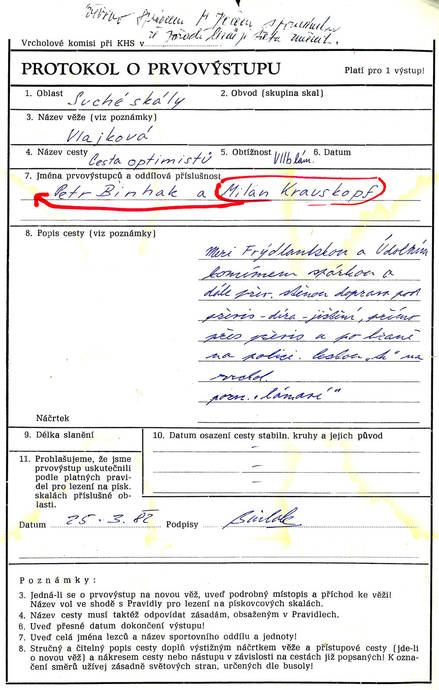 Vrcholové komisi při KHS v
PROTOKOL O PRVOVÝSTUPU Platí pro 1 výstup!
1. Oblast 2. Obvod (skupina skal)
Suché skály
3. Název věže (viz poznámky)
Vlajková
4. Název cesty 5. Obtížnost 6. Datum
Cesta optimistů VIIb lám.
7. Jména prvovýstupců a oddílová příslušnost
Petr Binhak a Milan Krauskopf
8. Popis cesty (viz poznámky)
Mezi Frýdlantskou a Údolním
komínem spárkou a
dále přev. stěnou doprava pod
převis - díra - jištění, přímo
přes převis a po hraně
na polici. cestou „ " na
vrchol.
pozn. „lámavé"
Náčrtek
9. Délka slanění 10. Datum osazení cesty stabiln. kruhy a jejich původ
11. Prohlašujeme, že jsme
prvovýstup uskutečnili
podle platných pravi-
del pro lezení na písk.
skalách příslušné ob-
lasti.
Datum 25. 3. 82 Podpisy Binhak
Poznámky:
3. Jedná-li se o prvovýstup na novou věž, uveď podrobný místopis a příchod ke věži!
Název vol ve shodě s Pravidly pro lezení na pískovcových skalách.
4. Název cesty musí taktéž odpovídat zásadám, obsaženým v Pravidlech.
6. Uveď přesné datum dokončení výstupu!
7. Uveď celá jména lezců a název sportovního oddílu a jednoty!
8. Stručný a čitelný popis cesty doplň výstižným náčrtkem věže a přístupové cesty (jde-li
o novou věž) a nákresem cesty nebo nástupu v závislosti na cestách již popsaných! K ozna-
čení směrů užívej zásadně světových stran, určených dle busoly!